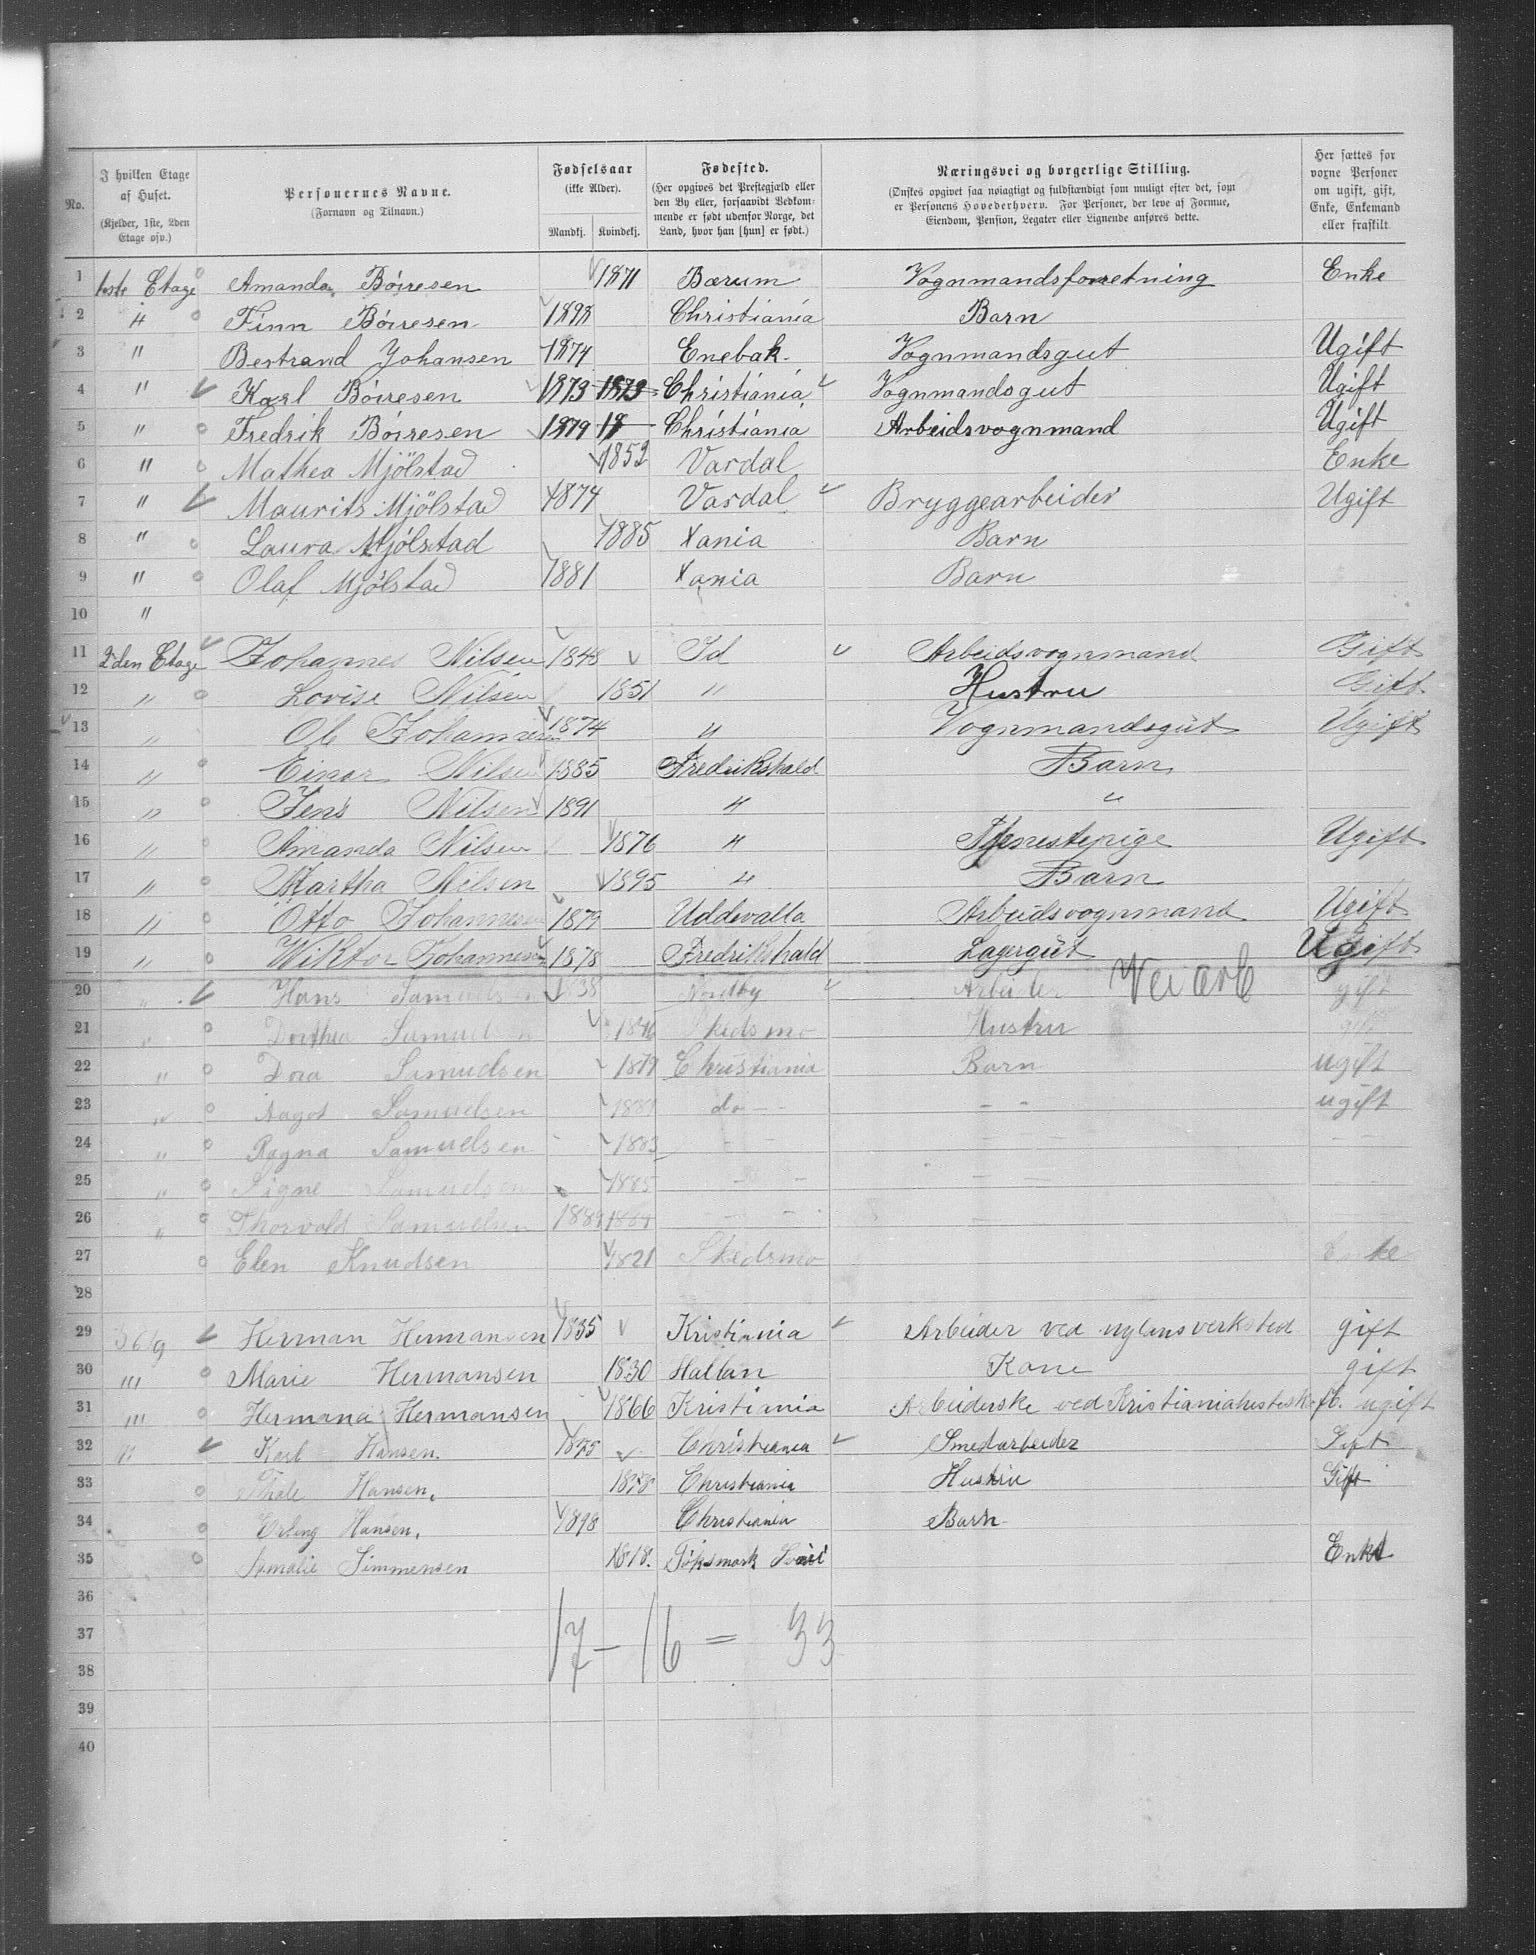 No.
I hvilken Etage af Huset. (Kjelder, 1ste, 2den Etage osv.)
Personernes Navne. (Fornavn og Tilnavn.)
Fødselsaar (ikke Alder). Mandkj. Kvindekj.
Fødested. (Her opgives det Prestegjæld eller den By eller, forsaavidt Vedkommende er født udenfor Norge, det Land, hvor han [hun] er født.)
Næringsvei og borgerlige Stilling. (Ønskes opgivet saa nøiagtigt og fuldstændigt som muligt efter det, som er Personens Hovederhverv. For Personer, der leve af Formue, Eiendom, Pension, Legater eller Lignende anføres dette.)
Her sættes for voxne Personer om ugift, gift, Enke, Enkemand eller fraskilt
1 1ste Etage Amanda Böiresen 1871 Bærum Vognmandsforretning Enke
2 " Finn Böiresen 1898 Christiania Barn
3 " Bertrand Johansen 1874 Enebak. Vognmandsgut Ugift
4 " Karl Böiresen 1873 1873 Christiania Vognmandsgut Ugift
5 " Fredrik Böiresen 1879 18 Christiania Arbeidsvognmand Ugift
6 " Mathea Mjölstad 1852 Vardal Enke
7 " Maurits Mjölstad 1874 Vardal Bryggearbeider Ugift
8 " Laura Mjölstad 1885 Xania Barn
9 " Olaf Mjölstad 1881 Xania Barn
10 "
11 2den Etage Johannes Nilsen 1848 Id Arbeidsvognmand Gift
12 " Lovise Nilsen 1851 " Hustru Gift
13 " Johannesen 1874 " Vognmandsgut Ugift
14 " Einar Nilsen 1885 Fredrikshald Barn
15 " Jens Nilsen 1891 " "
16 " Amanda Nilsen 1876 " Tjenestepige Ugift
17 " Martha Nilsen 1895 " Barn
18 " Otto Johannesen 1879 Uddevalla Arbeidsvognmand Ugift
19 " Wiktor Johannesen 1878 Fredrikshald Lagergut Ugift
20 " Hans Samuelsen 1838 Nordby Arbeider Vei arb gift
21 " Dorthea Samuelsen 1846 Skedsmo Hustru gift
22 " Dora Samuelsen 1879 Christiania Barn ugift
23 " Aagot Samuelsen 1881 do - - - - ugift
24 " Ragna Samuelsen 1883 - - - -
25 " Signe Samuelsen 1885 - - - -
26 " Thorvald Samuelsen 1889 1889 - - -
27 Elen Knudsen 1821 Skedsmo Enke
28
29 Herman Hermansen 1835 Kristiania Arbeider ved nylans verksted gift
30 " Marie Hermansen 1830 Hallan Kone gift
31 " Hermana Hermansen 1866 Kristiania Arbeiderske ved gift
32 " Karl Hansen. 1875 Christiania Smedarbeider Gift
33 Hansen, 1878 Christiania Hustru Gift
34 Erling Hansen, 1898 Christiania Barn
35 Amalie Simmensen 1818. Enke
36
37 17 - 16 = 33
38
39
40